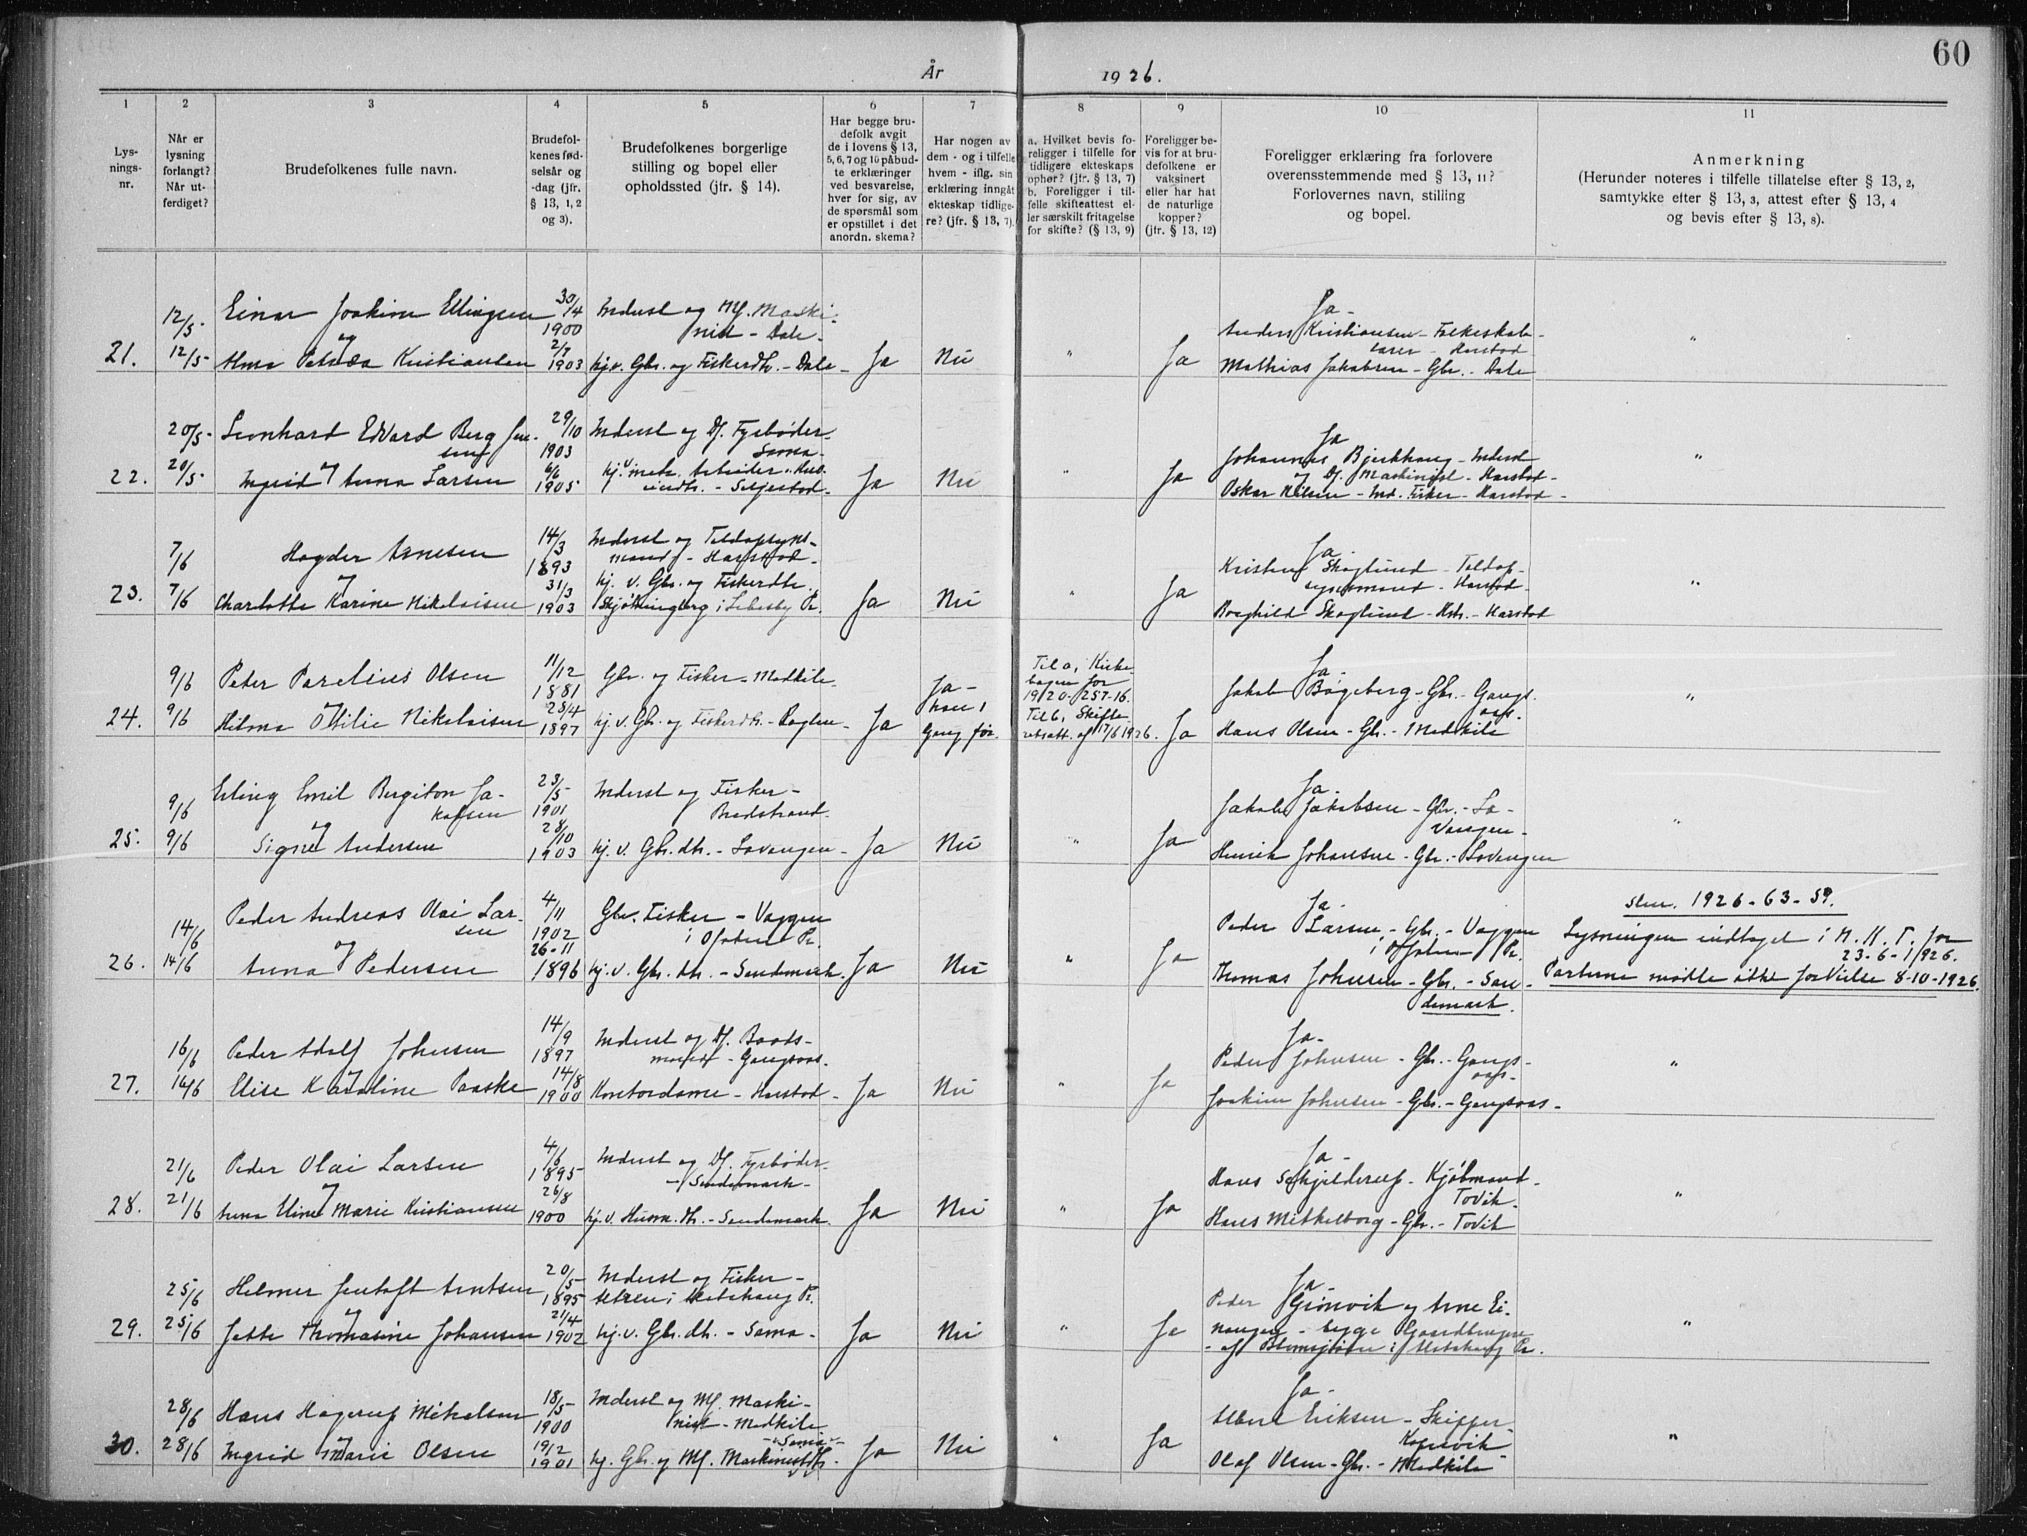 60
År 1926.
1 2 3 4 5 6 7 8 9 10 11
Lys-
nings-
nr.
Når er
lysning
forlangt?
Når ut-
ferdiget?
Brudefolkenes fulle navn.
Brudefol-
kenes fød-
selsår og
-dag (jfr.
§ 13, 1, 2
og 3).
Brudefolkenes borgerlige
stilling og bopel eller
opholdssted (jfr. § 14).
Har begge bru-
defolk avgit
de i lovens § 13,
5, 6, 7 og 10 påbud-
te erklæringer
ved besvarelse,
hver for sig, av
de spørsmål som
er opstillet i det
anordn. skema?
Har nogen av
dem - og i tilfelle
hvem - iflg. sin
erklæring inngåt
ekteskap tidlige-
re? (jfr. § 13, 7)
a. Hvilket bevis fo-
religger i tilfelle for
tidligere ekteskaps
ophør? (jfr. § 13, 7)
b. Foreligger i til-
felle skifteattest el-
ler særskilt fritagelse
for skifte? (§ 13, 9)
Foreligger be-
vis for at bru-
defolkene er
vaksinert
eller har hat
de naturlige
kopper?
(jfr. § 13, 12)
Foreligger erklæring fra forlovere
overensstemmende med § 13, 11?
Forlovernes navn, stilling
og bopel.
Anmerkning
(Herunder noteres i tilfelle tillatelse efter § 13, 2,
samtykke efter § 13, 3, attest efter § 13, 4
og bevis efter § 13, 8).
21.
12/5-
12/5-
Einar Joakim Ellingsen
og
Kristiansen
30/4
1900
2/7
1903
Inderst og Mf. Maski-
nist - Dale-
hj. v. Gbr. og Fiskerdtr. - Dale -
Ja
Nei
"
Ja
Ja -
Anders Kristiansen - Folkeskole-
lærer - Harstad
Mathias Jakobsen - Gbr. - Dale
"
22.
20/5-
20/5-
Leonhard Edvard Berg Jen-
sen
og
Ingrid Anna Larsen
29/10
1903
6/6
1905
Inderst og Df. Fyrbøder-
Sama -
- Seljestad -
Ja
Nei
"
Ja
Ja
Johannes Bjerkhaug - Inderst
og Df. Maskinist - Harstad -
Oskar Nilsen - Ind. Fisker - Harstad -
"
23.
7/6
7/6
Arnesen
og
Charlotte Karine Nikolaisen
14/3
1893
31/3
1903
Inderst og Toldopsyns-
mand - Harstad -
hj. v. Gbr. og Fiskerdtr.
Skjøtningberg i Lebesby Pr.
Ja
Nei
"
Ja
Ja -
Kristen Skoglund - Toldop-
synsmand - Harstad -
Borghild Skoglund - Hstr. - Harstad
"
24.
9/6
9/6
Peder Parelius Olsen
og
Hilma Ottilie Nikolaisen
11/12
1881
28/4
1897
Gbr. og Fisker - Medkile -
hj. v. Gbr. og Fiskerdtr. -
Ja
Ja -
han 1
Gang før.
Til a, Kirke-
bogen for
1920-257-16.
Til b, Skifte-
retsatt. af 17/6 1926.
Ja
Ja -
Jakob Bøgeberg - Gbr. - Gangs-
aas -
Hans Olsen - Gbr. - Medkile
"
25.
9/6
9/6
Erling Emil Bergiton Ja-
kobsen
og
Signe Andersen
23/5-
1901
28/10
1903
Inderst og Fisker -
Bredstrand.
hj. v. Gbr. dtr. - Lavangen -
Ja
Nei
"
Ja
Ja -
Jakob Jakobsen - Gbr. - La-
vangen -
Henrik Johansen - Gbr. - Lavangen
"
26.
14/6
14/6
Peder Andreas Olai Lar-
sen
og
Anna Pedersen
4/11
1902
26-11
1896
Gbr. Fisker - Vaggen
i Ofoten Pr.
hj. v. Gbr. dtr. - Sandemark.
Ja
Nei
"
Ja
Ja -
Peder Larsen - Gbr. - Vaggen
i Ofoten Pr.
Thomas Johnsen - Gbr. - San-
demark.
1926-63-59.
Lysningen indtaget i N. K. T. for
23-6-1926.
Parterne mødte ikke for Vielse 8-10-1926.
27.
16/6
16/6
Peder Adolf Johnsen
og
Elise Karoline Paaske
14/9
1897
14/8
1900
Inderst og Df. Baads-
mand - Gangsaas.
Kontordame - Harstad -
Ja
Nei
"
Ja
Ja -
Peder Johnsen - Gbr. - Gangs-
aas -
Joakim Johnsen - Gbr. - Gangsaas -
"
28.
21/6
21/6
Peder Olai Larsen
og
Anna Eline Marie Kristiansen
4/6
1895
26/8
1900
Inderst og Df. Fyrbøder -
- Sandemark -
hj. v. Husm. dtr. - Sandemark.
Ja
Nei
"
Ja
Ja -
Hans Schjelderup - Kjøbmand -
Tovik -
Hans Mikkelborg - Gbr. - Tovik
"
29.
25/6
25/6
Helmer Jentoft Arntsen
og
Jette Thomasine Johansen
20/5-
1895
21/4
1902
Inderst og Fisker -
i Alstahaug Pr.
hj. v. Gbr. dtr. - Sama -
Ja
Nei
"
Ja
Ja -
Peder Grønvik og Arne Ei-
- begge Gaardbrugere
- af i Alstahaug Pr.
"
30.
28/6
28/6
Hans Hagerup Mikalsen
og
Ingrid Marie Olsen
18/5-
1900
19/2
1901
Inderst og Mf. Maski-
nist - Medkile
- Sama -
hj. Gbr. og Mf. Maskinistdtr. -
Ja
Nei
"
Ja
Ja -
Eriksen - Skipper -
Olaf Olsen - Gbr. - Medkile
"